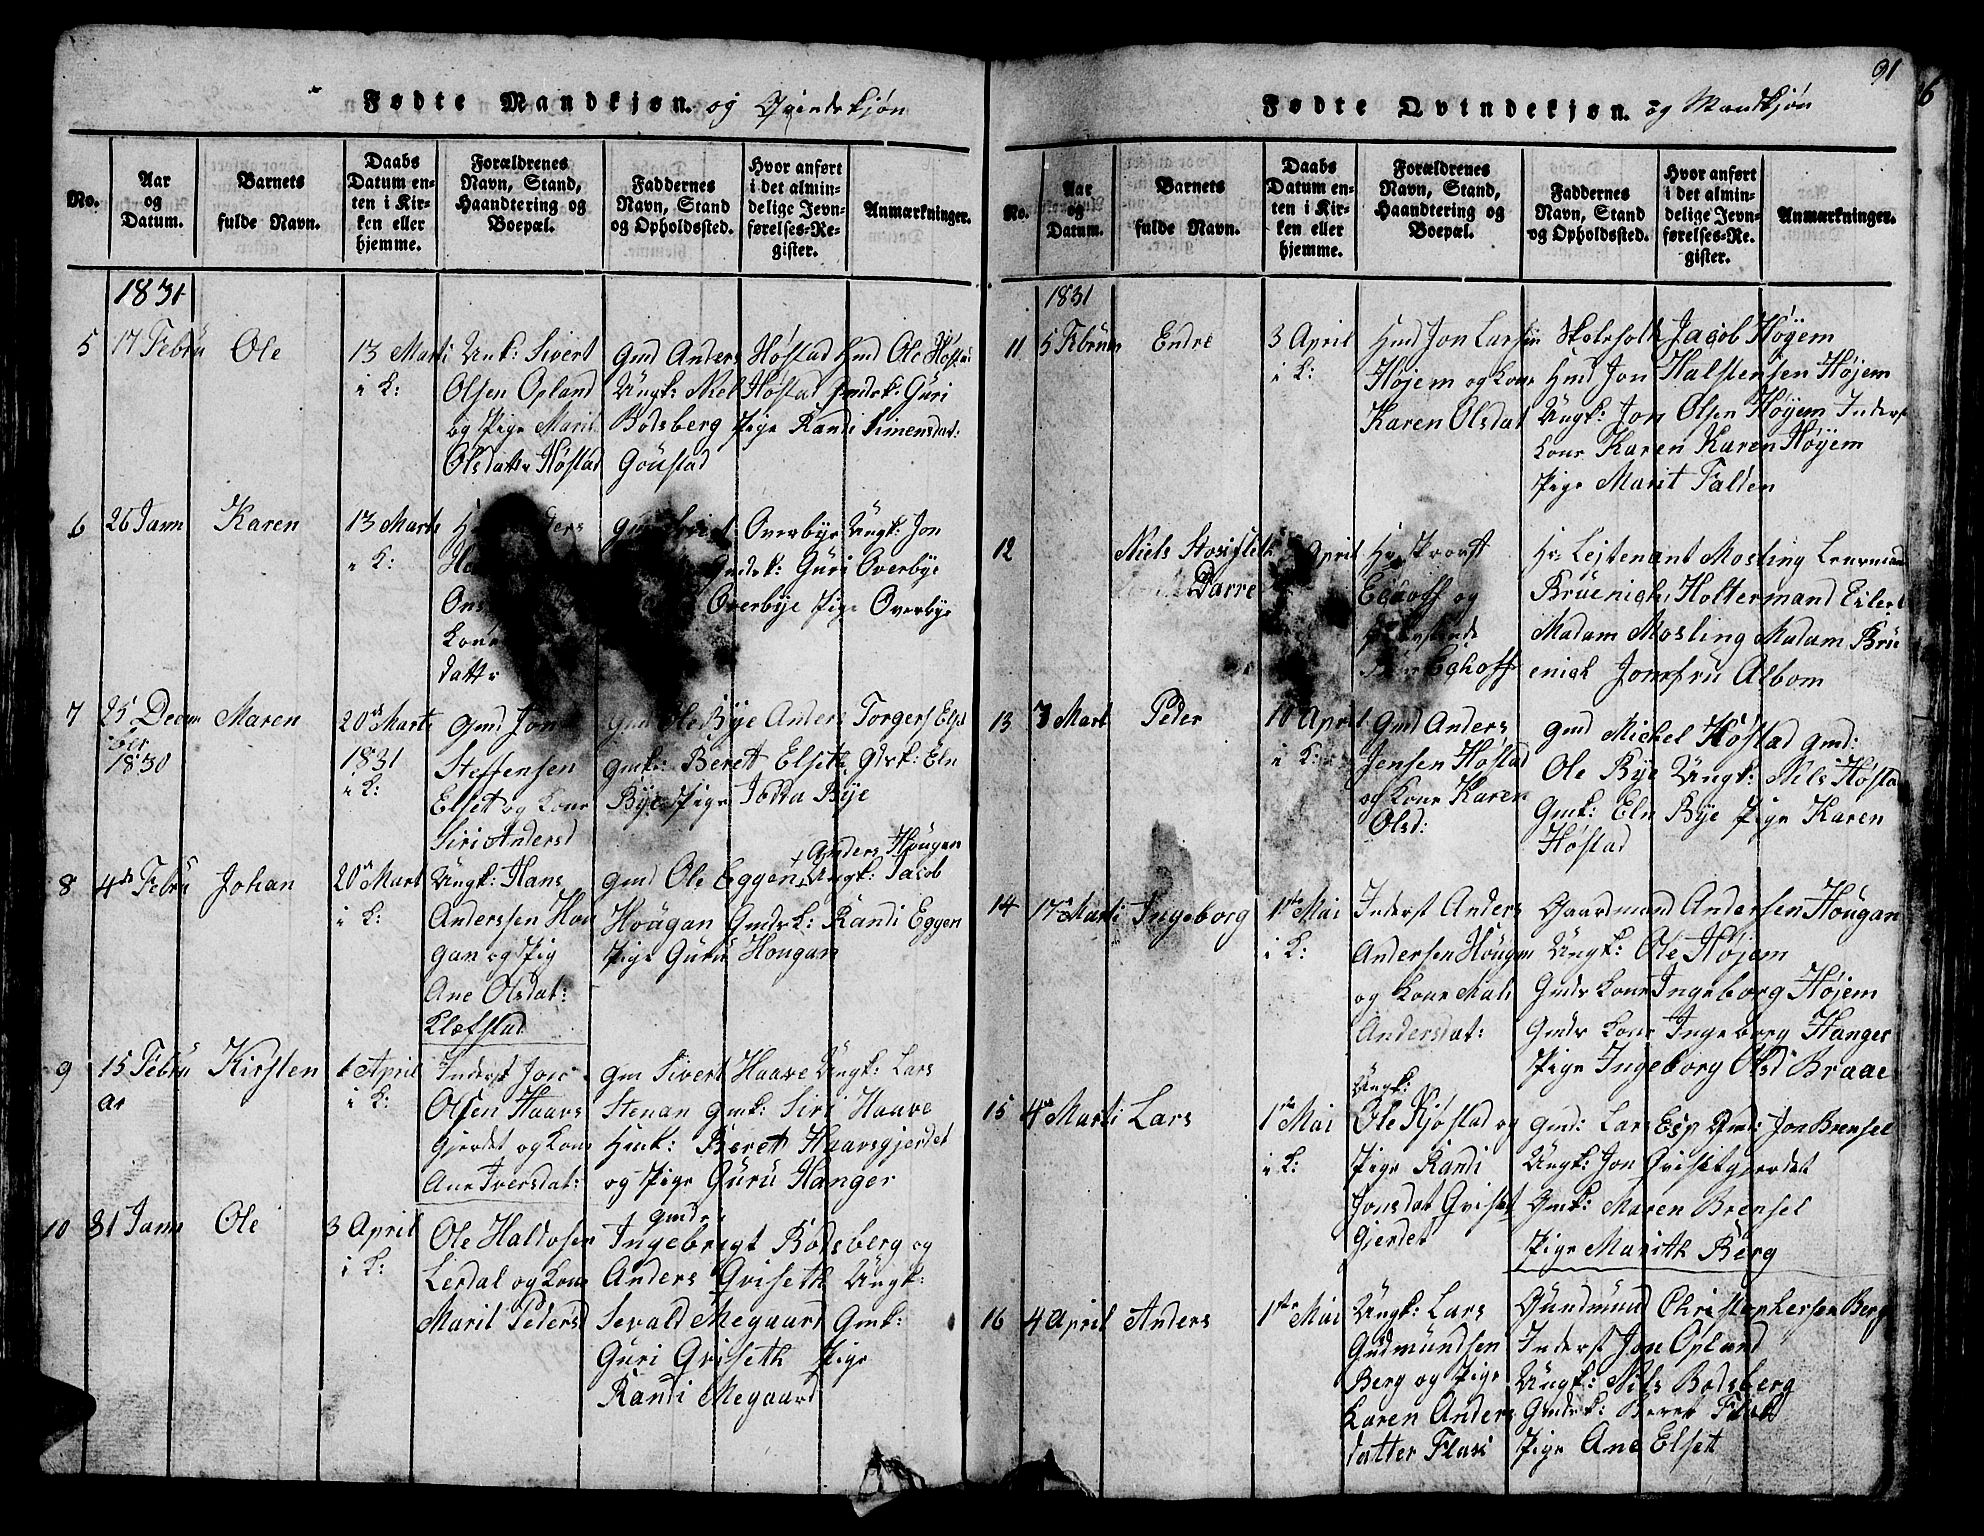 Fødte Mandkjøn. og Qvindekjøn
No.
Aar
og
Datum.
Barnets
fulde Navn.
Daabs
Datum en-
ten i Kir-
ken eller
hjemme.
Forældrenes
Navn, Stand,
Haandtering og
Boepæl.
Faddernes
Navn, Stand
og Opholdssted.
Hvor anført
i det almin-
delige Jevn-
førelses-Re-
gister.
Anmærkninger.
1831
5
17 Febru
Ole
13 Marti
i K:
Ungk: Sivert
Olsen Opland
og Pige Marit
Olsdatter Høstad
Gmd Anders Høstad Hmd Ole Høstad
Ungk: Niel Høstad Gmdsk: Guri
Bodsberg Pige Randi Simensdat:
Goustad
6
26 Janu
Karen
13 Marti
i K:
Kone
datter
Overbye Ungk: Jon
Gmdsk: Guri Overbye
Overbye Pige Overbye
7
25 Decem
ber
1830
Maren
20de Marti
1831
i K:
Gmd Jon
Steffensen
Elset og Kone
Siri Andersd
Gmd Ole Bye Anders Torgers Elset
Gmk: Beret Elseth Gdsk: Eln
Bye Pige Jodta Bye
8
4de Febru
Johan
20de Mart
i K:
Ungk: Hans
Anderssen Hou
gan og Pig
Ane Olsdat:
Klefstad
+ Anders Hougen
Gmd Ole Eggen + Ungk: Jacob
Hougan Gmdsk: Randi Eggen
Pige Guru Hougan
9
15 Febru
ar
Kirsten
1 April
i K:
Inderst Jon
Olsen Haavs
gjerdet og Kone
Ane Iversdat:
Gm Sivert Haave Ungk: Lars
Stenan Gmk: Siri Haave
Hmk: Beret Haavsgjerdet
og Pige Guru Hanger
10
31 Janu
Ole
3 April
i K:
Ole Haldosen
Lerdal og Kone
Marit Pedersd
Gmdr:
Ingebregt Bodsberg og
Anders Qviseth Ungk:
Sevald Megaard Gmk:
Guri Qviseth Pige
Randi Megaard
91
6
Fødte Qvindekjøn. og Mandkjøn
No.
Aar
og
Datum.
Barnets
fulde Navn.
Daabs
Datum en-
ten i Kir-
ken eller
hjemme.
Forældrenes
Navn, Stand,
Haandtering og
Boepæl.
Faddernes
Navn, Stand
og Opholdssted.
Hvor anført
i det almin-
delige Jevn-
førelses-Re-
gister.
Anmærkninger.
1831
11
5 Februar
Endre
3 April
i K:
Hmd Jon Larsen
Højem og Kone
Karen Olsdat
Skoleholder Jacob Høyem
Hmd Jon Halstensen Højem
Ungk: Jon Olsen Høyem Inderst
Kone Karen Karen Høyem
Pige Marit Falden
12
Niels Stosifleth
Darre
April
Hr Provst
og
Hr Lejtenant Mosling Lensmand
Bruenich, Holtermand Eilert
Madam Mosling Madam Bru
enich Jomfru Albom
13
7 Mart
Peder
10 April
i K:
Gmd Anders
Jensen Høstad
og Kone Karen
Olsd:
Gmd Michel Høstad Gmd:
Ole Bye Ungk: Niels Høstad
Gmk: Eln Bye Pige Karen
Høstad
14
17de Marti
Ingeborg
1ste Mai
i K:
Inderst Anders
Andersen Hougen
og Kone Mali
Andersdat:
Gaardmand Andersen Hougan
Ungk: Ole Højem
Gmds Kone Ingeborg Højem
Gmds Kone Ingeborg Hanger
Pige Ingeborg Olsd Braae
15
4de Marti
Lars
1ste Mai
i K:
Ungk:
Ole Kjøstad og
Pige Randi
Jonsdat Qviset
Gjerdet
Gmd: Lars Esp Gmd: Jon Brensel
Ungk: Jon Qvisetgjerdet
Gmk: Maren Brensel
Pige Marith Berg
16
4 April
Anders
1ste Mai
Ungk: Lars
Gudmundsen
Berg og Pige
Karen Anders
datter Flaxi
Gundmund Christophersen Berg
Inderst Jon Opland
Ungk: Nils Bodsberg
Gmdsk: Beret
Pige Ane Elset